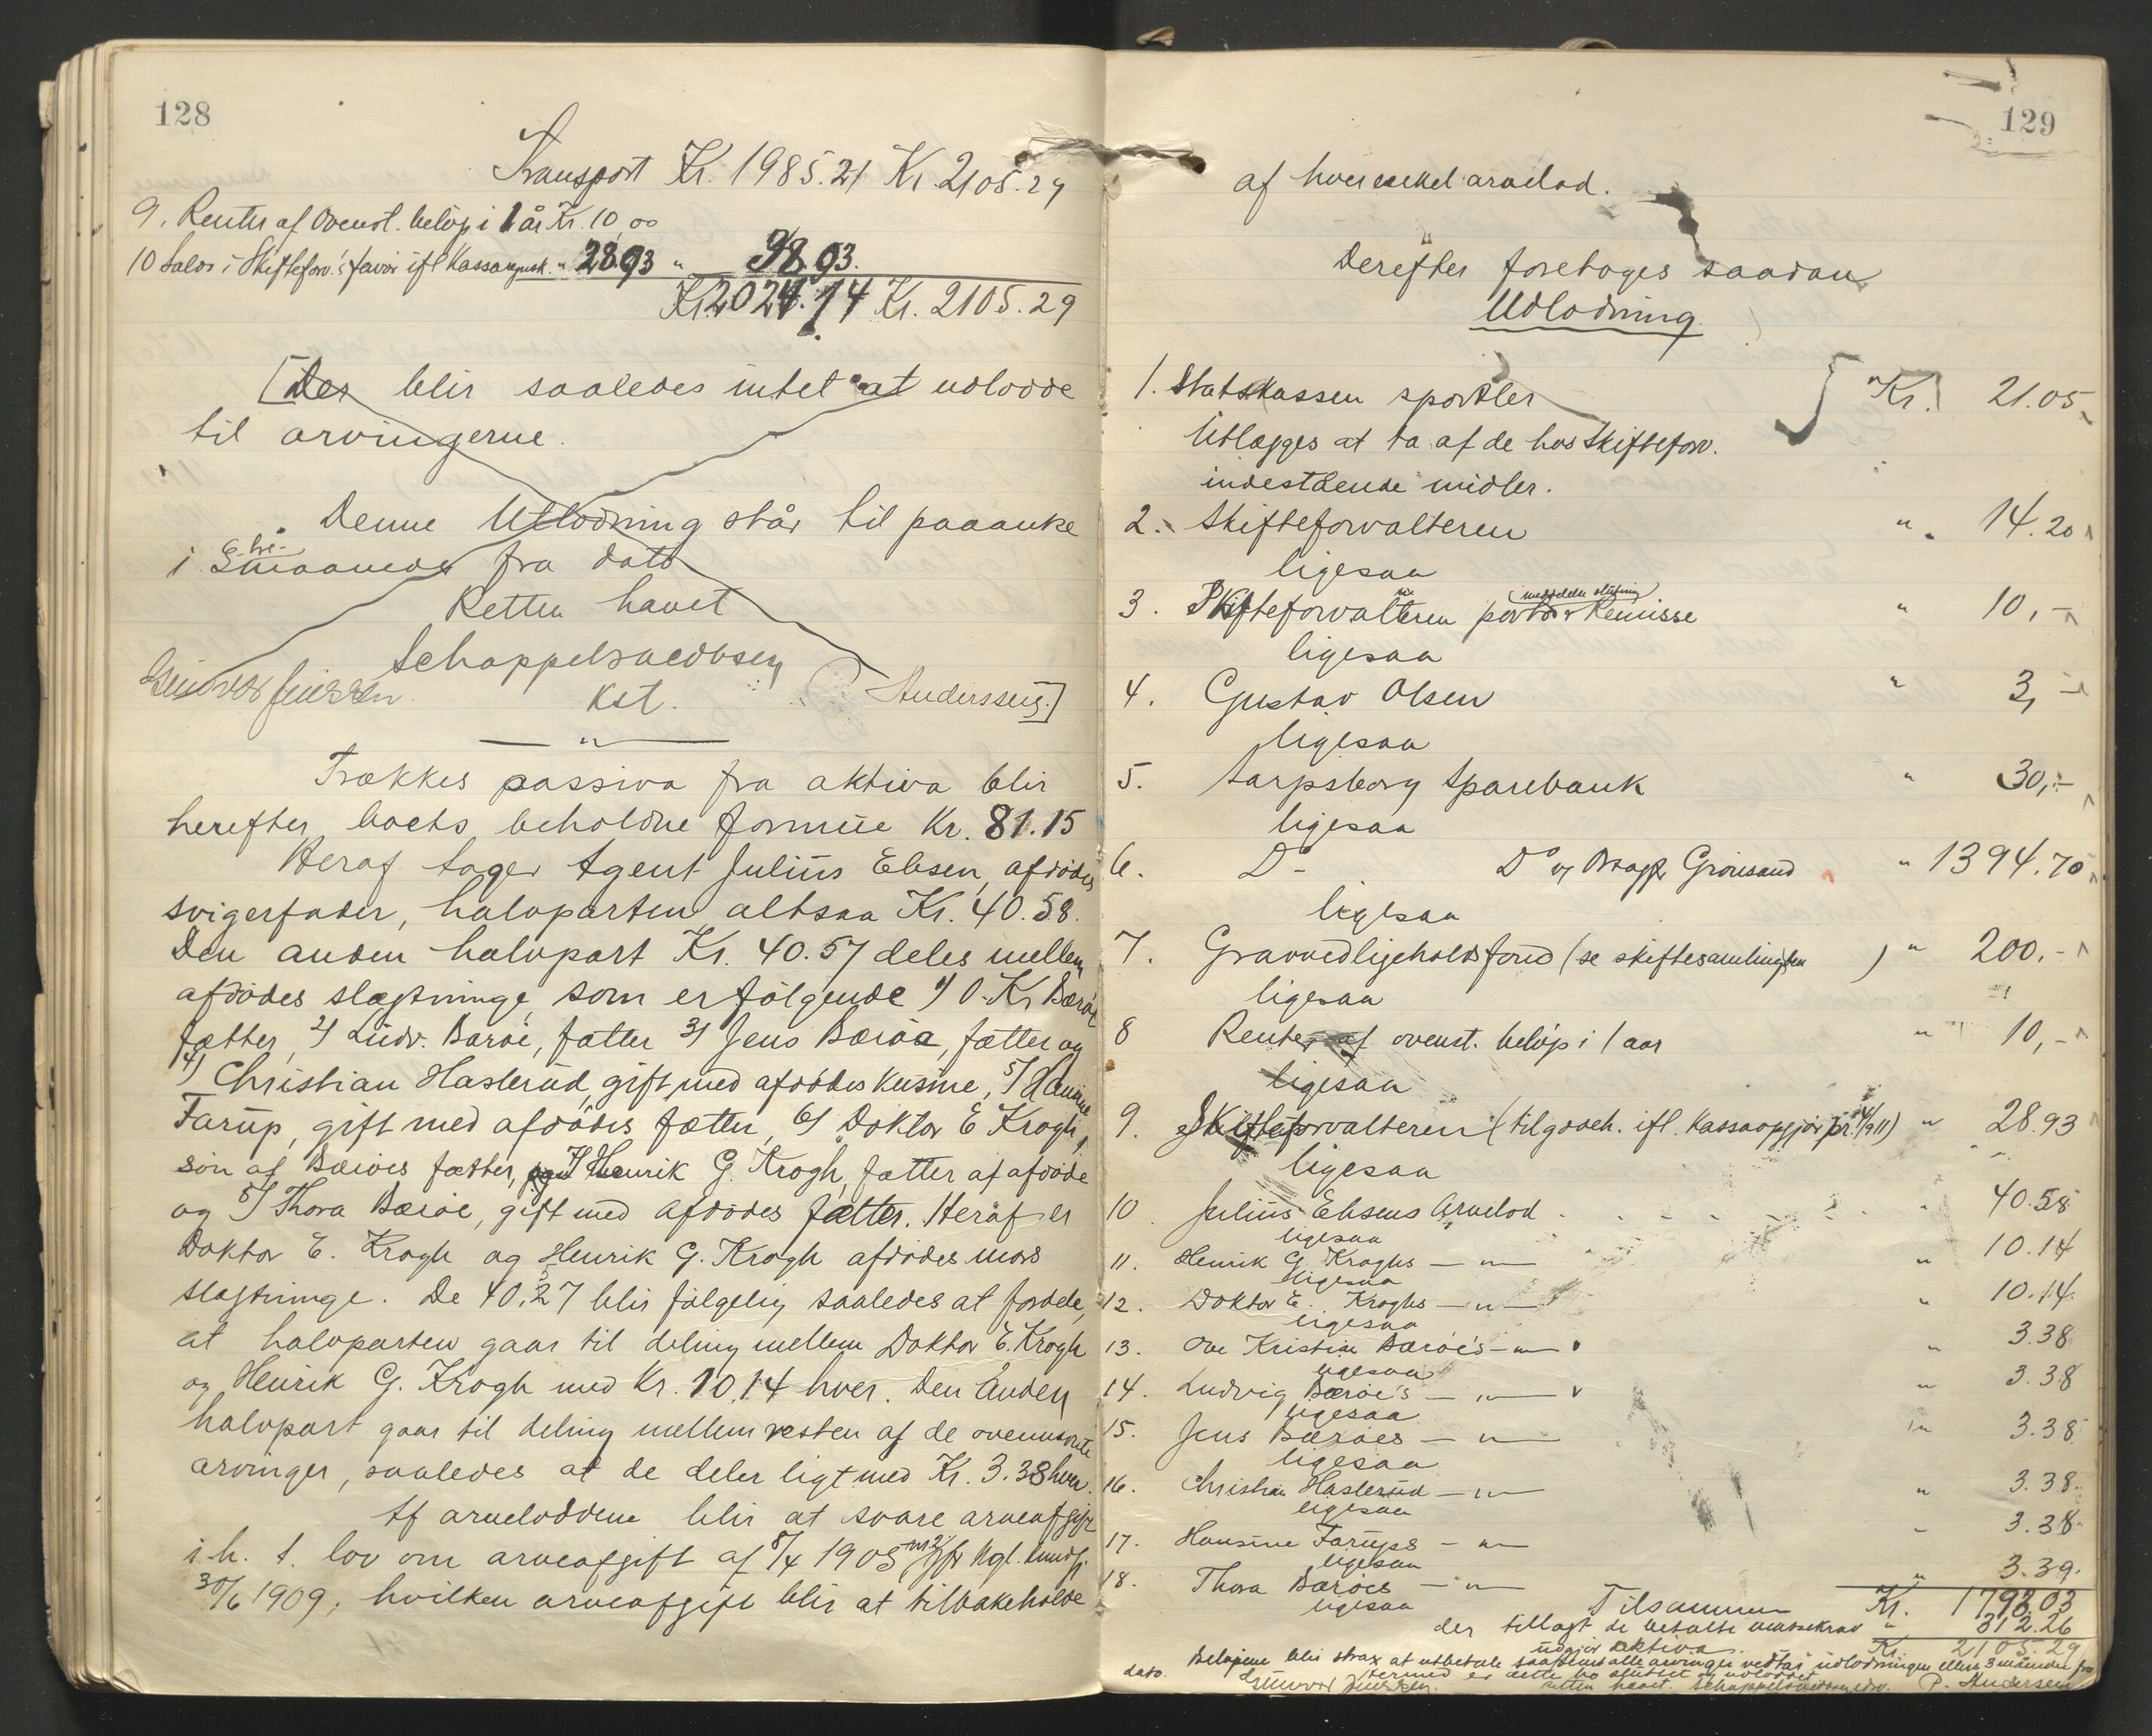 128
Transport Kr. 1985.21 Kr. 2105.29
9. Renter af Ovenst. beløp i 1 år Kr. 10,00
10 Saldo i Skifteforv.'s favør ifl Kassaregnsk. " 28.93 " 38.93.
Kr. 2024.14 Kr. 2105.29
[Der blir saaledes intet at udlodde
til arvingerne.
Denne Utlodning står til paaanke
i maaneder fra dato
Retten hævet
Schappelsacobsen
kst.
Anderssen.]
"
Trækkes passiva fra aktiva blir
herefter boets beholdne formue Kr. 81.15
Heraf tager Agent Julius Ebsen, afdødes
svigerfader, halvparten altsaa Kr. 40.58.
Den anden halvpart Kr. 40.57 deles mellem
afdødes slægtninge, som er følgende 1) O. Kr Barøe
fætter, 2) Ludv. Barøe, fætter 3) Jens Barøe, fætter og
4) Christian Haslerud, gift med afdødes kusine, 5) Hansine
Farup, gift med afdødes fætter, 6) Doktor E Krogh,
søn af Barøes fætter, 7) Henrik G. Krogh, fætter af afdøde
og 8) Thora Barøe, gift med afdødes fætter. Heraf er
Doktor E. Krogh og Henrik G. Krogh afdødes mors
slægtninge. De 40.57 blir følgelig saaledes at fordele,
at halvparten gaar til deling mellem Doktor E. Krogh
og Henrik G. Krogh med Kr. 10.14 hver. Den anden
halvpart gaar til deling mellem resten af de ovennævnte
arvinger, saaledes at de deler ligt med Kr. 3.38 hver.
Af arveloddene blir at svare arveafgift
i. h. t. lov om arveafgift af 8/4 1905 nr 2 jfr kgl. kundg.
30/6 1909, hvilken arveafgift blir at tilbakeholde
129
af hver enkel arvelod.
Derefter foretages saadan
Udlodning.
1. Statskassen sportler " Kr. 21.05
Utlægges at ta af de hos Skifteforv.
indestående midler.
2. Skifteforvalteren " 14.20
ligesaa
3. Skifteforvalteren porto & Remisse " 10,-
ligesaa
4. Gustav Olsen " 3,-
ligesaa
5. Sarpsborg Sparebank " 30,-
ligesaa
6. Do Do og Grønsand " 1394.70
ligesaa
7. Gravvedligeholdsfond (se skiftesamlingen ) " 200,-
ligesaa
8 Renter af ovenst. beløp i 1 aar " 10,-
ligesaa
9. Skifteforvalteren (tilgodeh. ifl. Kassaopgjør pr. 4/9 11) " 28.93
ligesaa
10. Julius Ebsens Arvelod " 40.58
ligesaa
11. Henrik G. Kroghs — " — " 10.14
ligesaa
12. Doktor E. Kroghs — " — " 10.14
ligesaa
13. Ove Kristian Barøe's — " — " 3.38
ligesaa
14. Ludvig Barøe's — " — " 3.38
ligesaa
15. Jens Barøes — " — " 3.38
ligesaa
16. Christian Haslerud — " — " 3.38
ligesaa
17. Hansine Farups — " — " 3.38
ligesaa
18. Thora Barøes — " — " 3.39
ligesaa
Tilsammen Kr. 1793.03
der tillagt de betalte massekrav " 312.26
udgjør aktiva Kr. 2105.29
Beløpene blir strax at utbetale saafremt alle arvinger vedtar udlodningen ellers 3 måneder fra
dato. Hermed er dette bo sluttet og udloddet
retten hævet. P. Andersen